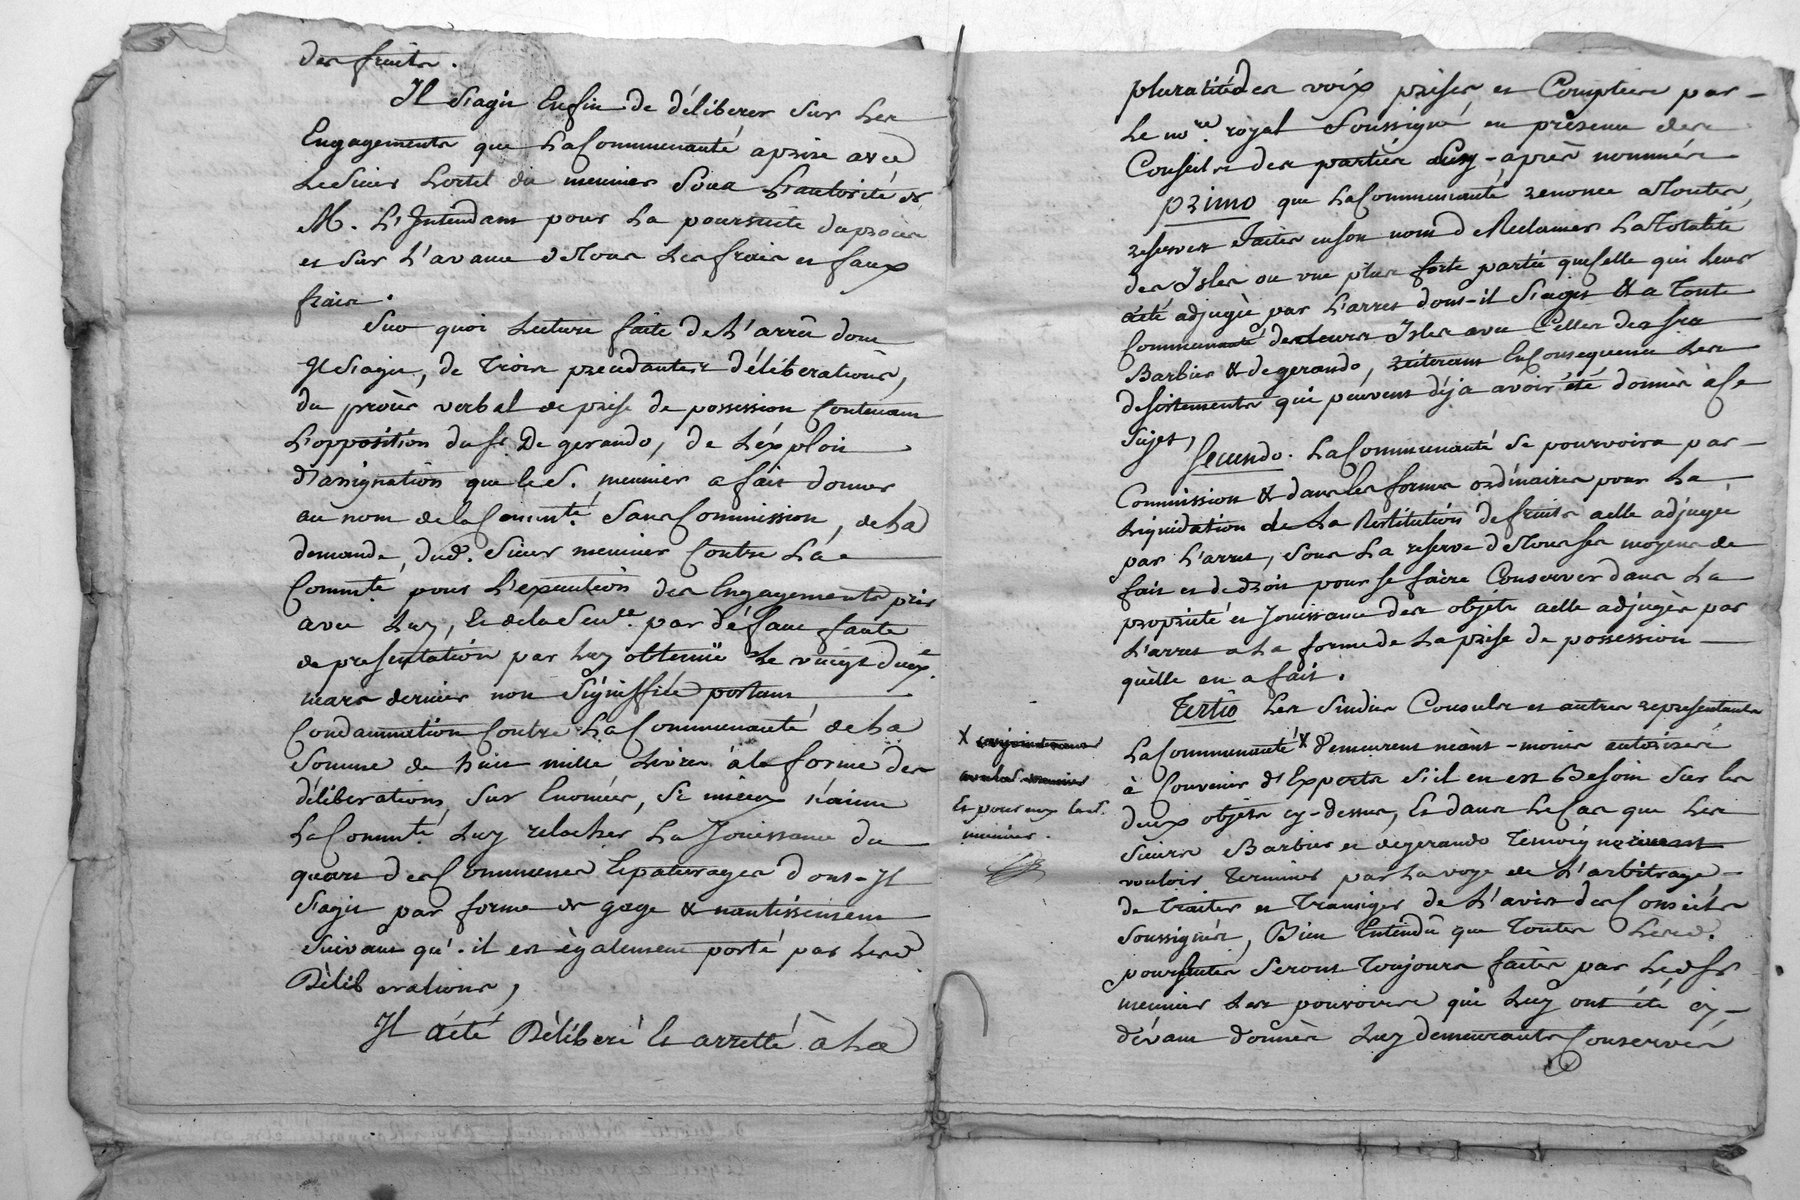 des fruits.
Il s'agit Enfin de déliberer sur Les
Engagements que LaCommunauté aprise avec
LeSieur Lortel du meunier Sous L'autorité de
M. L'Intendant pour La poursuite duprocès
et sur L'avance deTous Les frais et faux
frais.
Suo quoi Lecture faite de L'arrêt dont
Il s'agit, de Trois precedantes délibérations,
du procès verbal de prise de possession Contenant
L'opposition du Sr. De gerando, de L'éxploit
d'assignation que le S. meunier a fait donner
au nom de la Commté. Sans Commission, de La
demande dud. Sieur meunier Contre La
Commté pour L'execution des Engagements pris
avec Luy, Et de la Sence. par défaut faute
de presentation par Luy obtenüe Le vingt deuxe.
mars dernier non Signiffiée portant
Condamnation Contre La Communauté de La
Somme de huit mille Livres à la forme des
délibérations Sur Enoncées, Si mieux n'aime
LaCommté. Luy relacher La Jouissance du
quart des Communes Et paturages dont Il
s'agit par forme de gage & nantissement
Suivant qu'il est également porté par Lesd
Délibérations,
Il aété Déliberé Et arretté à La
pluralité des voix prises et Comptées par
Le nore. royal Soussigné en présence des
Conseils des parties Cy-après nommés
primo que LaCommunauté renonce à toutes
reserves faites enson nom de Reclamer LaTotalité
des Isles ou une plus forte partie que Celle qui Leur
aété adjugée par L'arret dont-il S'agit & a Toute
Communauté des leurs Isles avec Celles des Srs
Barbier & degerando, reiterant En Consequence Les
desistements qui peuvent déja avoir été donnés à Ce
Sujet,
Secundo. LaCommunauté Se pourvoira par
Commission & dans les formes ordinaires pour La
Liquidation de La Restitution de fruits aelle adjugée
par L'arret, Sous La reserve de Tous Ses moyens de
fait et dedroit pour Se faire Conserver dans La
proprieté et Jouissance des objets aelle adjugés par
L'arret a La forme de La prise de possession
qu'elle en a fait.
Tertio Les Sindics Consuls et autres representants
LaCommunauté X demeurent néant-moins autorisés
à Convenir d'Experts S'il en est Besoin Sur les
deux objets cy-dessus, Et dans Le Cas que Les
Sieurs Barbier et degerando Temoigneroient
vouloir Terminer par La voye de L'arbitrage
de Traiter et Transiger de L'avis des Conseils
Soussignés, Bien Entendu que Toutes Lesd.
poursuites Seront Toujours faites par Led Sr
meunier Les pouvoirs qui Luy ont été cy-
dévant donnés Luy demeurants Conservés
X
Et pour eux led.
meunier.